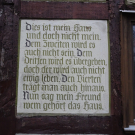 Dies ist mein Haus
und doch nicht mein.
Dem Zweiten wird es
auch nicht sein. Dem
Dritten wird es übergeben,
doch der wird auch nicht
ewig leben. Den Vierten
trägt man auch hinaus.
Nun sag mein Freund
wem gehört das Haus.